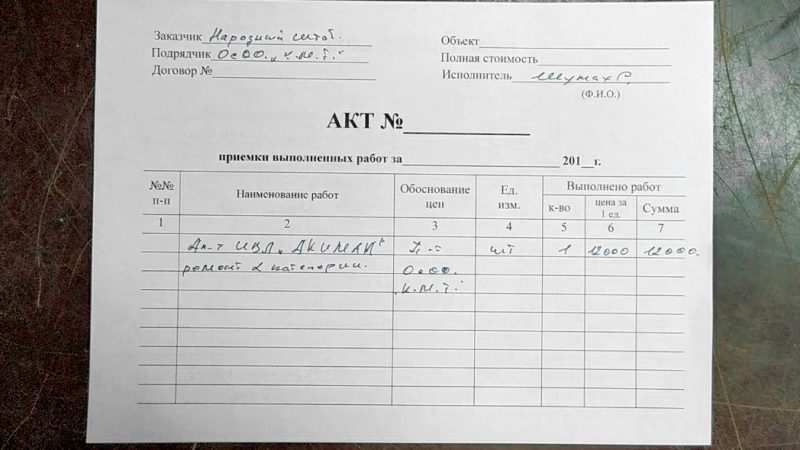 Заказчик Народный штаб.
Подрядчик ОсОО. "К.М.Т."
Договор №
Объект
Полная стоимость
Исполнитель
(Ф.И.О.)
АКТ №
приемки выполненных работ за 201 г.
№№ п-п Наименование работ Обоснование цен Ед. изм. Выполнено работ
к-во цена за 1 ед. Сумма
1 2 3 4 5 6 7
Ап-т ИВЛ "АКИМАН" шт 1 12000 12000.
ремонт 2 категории. ОсОО.
"К.М.Т."